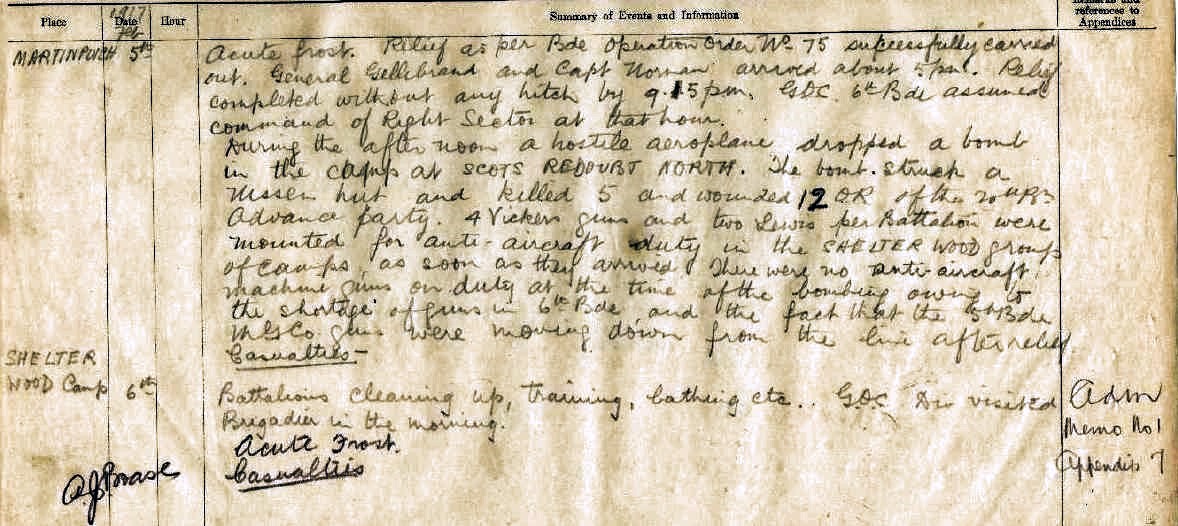 Place
1917
Date
Feb
Hour
Summary of Events and Information
references to
Appendices
MARTINPUICH 5th
Acute frost. Relief as per Bde Operation Order No 75 successfully carried
out. General Gellibrand and Capt Norman arrived about 5 pm. Relief
completed without any hitch by 9.15 pm. G.O.C. 6th Bde assumed
command of Right Sector at that hour.
During the afternoon a hostile aeroplane dropped a bomb
in the camp at SCOTS REDOUBT NORTH. The bomb struck a
Nissen hut and killed 5 and wounded 12 OR of the
Advance party. 4 Vickers guns and two Lewis per Battalion were
mounted for anti-aircraft duty in the SHELTER WOOD group
of camps as soon as they arrived. There were no anti-aircraft
machine guns on duty at the time of the bombing owing to
the shortage of guns in 6th Bde and the fact that the 5th Bde
M.G. Co. guns were moving down from the line after relief
Casualties -
SHELTER
WOOD Camp 6th
Battalions cleaning up, training, bathing etc.. G.O.C. Div visited
Brigadier in the morning.
Acute Frost.
Casualties
Adm
Memo No 1
Appendix 7